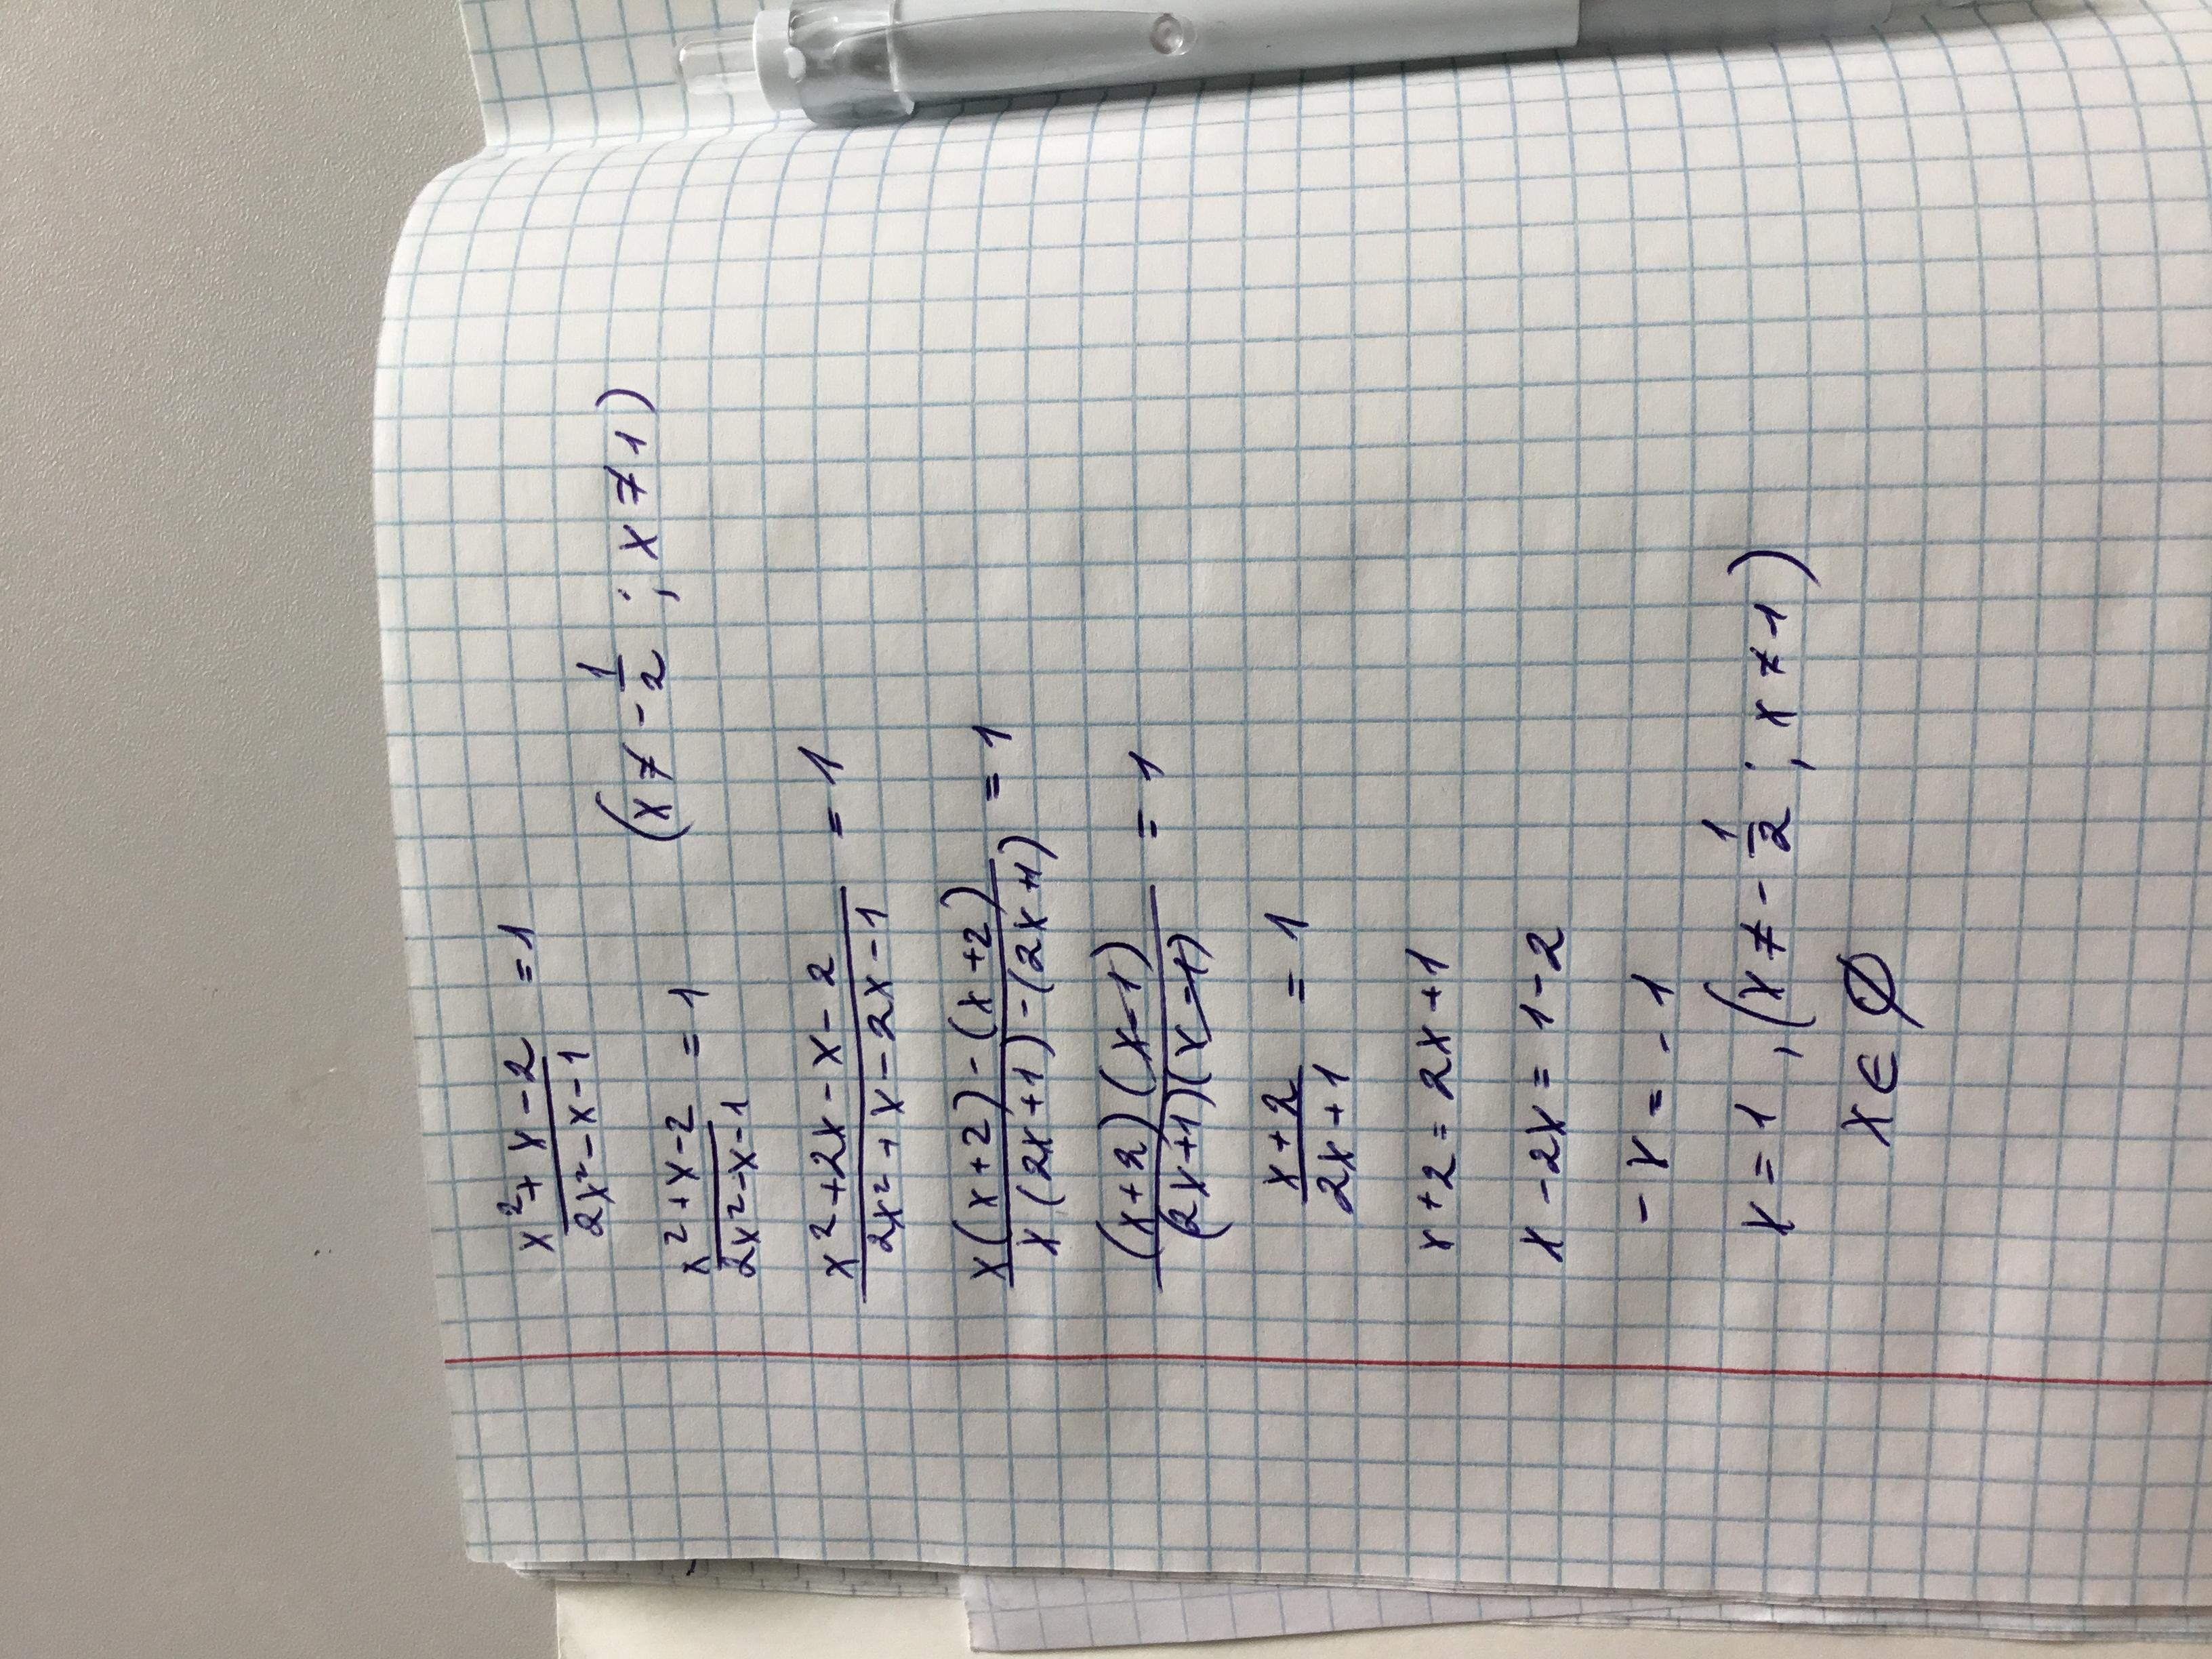 (x²+x-2)/(2x²-x-1) = 1
(x²+x-2)/(2x²-x-1) = 1 (x ≠ -1/2 ; x ≠ 1)
(x²+2x-x-2)/(2x²+x-2x-1) = 1
(x(x+2)-(x+2))/(x(2x+1)-(2x+1)) = 1
((x+2)(x-1))/((2x+1)(x-1)) = 1
(x+2)/(2x+1) = 1
x+2 = 2x+1
x-2x = 1-2
-x = -1
x = 1 , (x ≠ -1/2 ; x ≠ 1)
x ∈ ∅